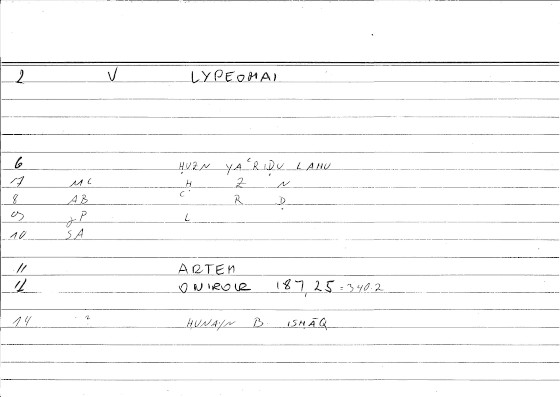 2 V LYPEOMAI
6 ḤUZN YAʿRIḌU LAHU
7 MC Ḥ Z N
8 AB ʿ R Ḍ
09 gP L
10 SA
11 ARTEM
12 ONIROCR 187,25 = 340.2
14 2 HUNAYN B ISHĀQ